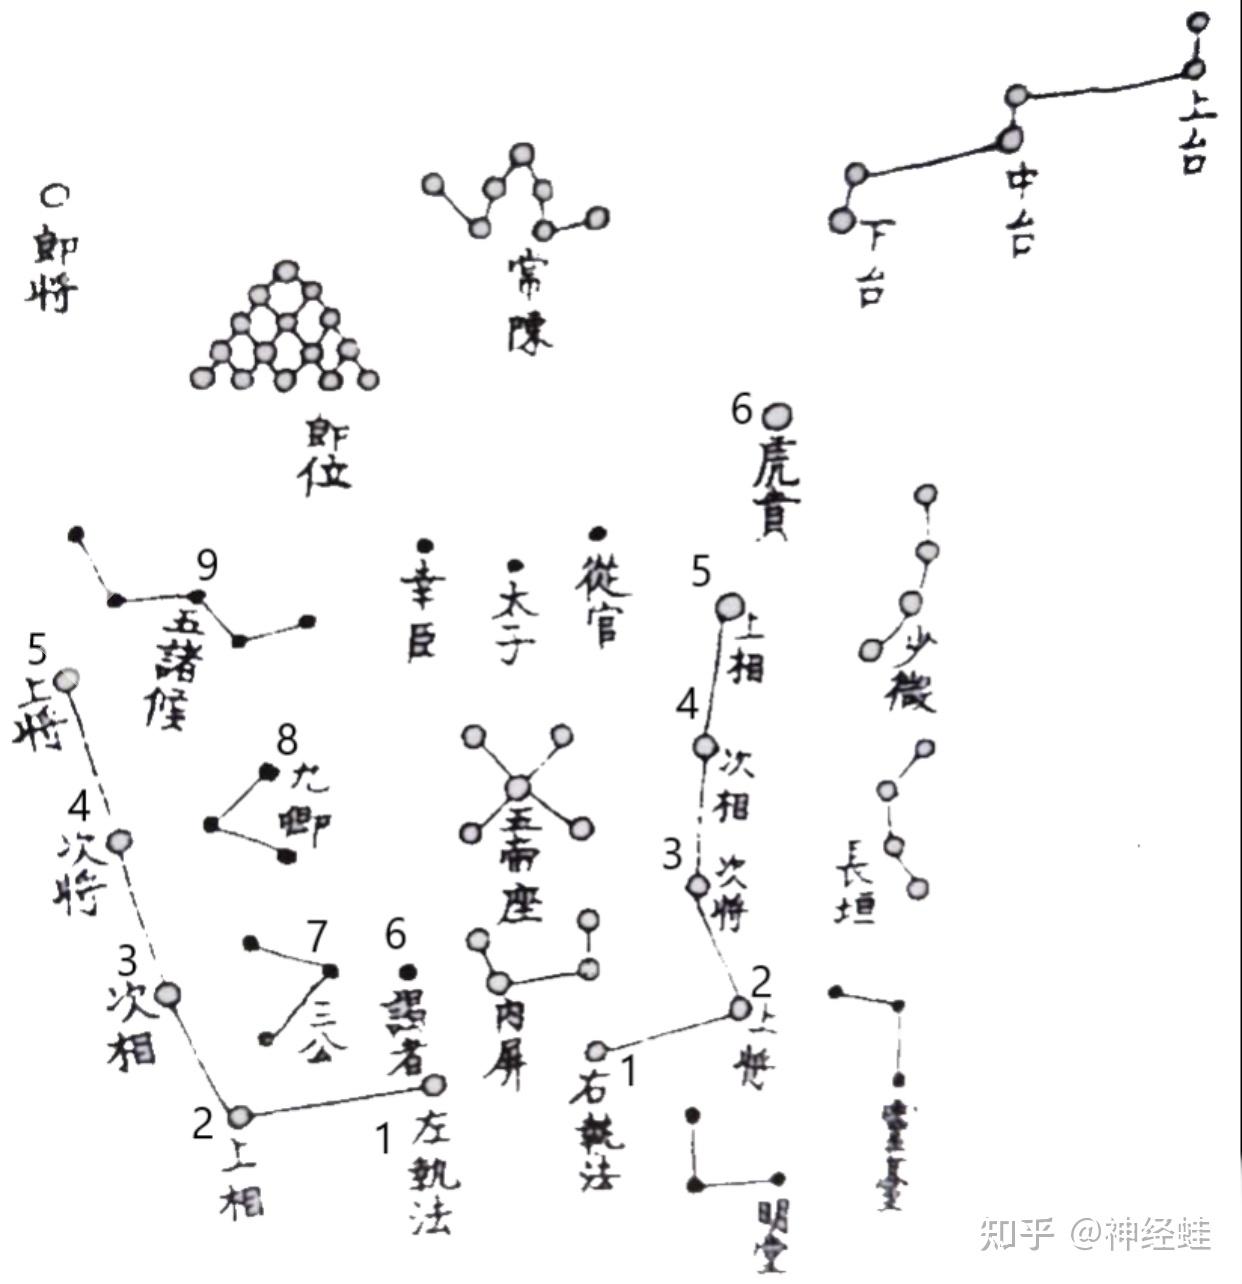 上台
中台
下台
郎将
常陳
郎位
6
虎賁
9
五諸候
幸臣
太子
從官
5
上相
少微
5
上将
4
次相
8
九卿
4
次将
五帝座
3
次将
長垣
7
三公
6
謁者
內屏
3
次相
2
上將
1
右執法
2
上相
1
左執法
靈臺
明堂
知乎 @神经蛙